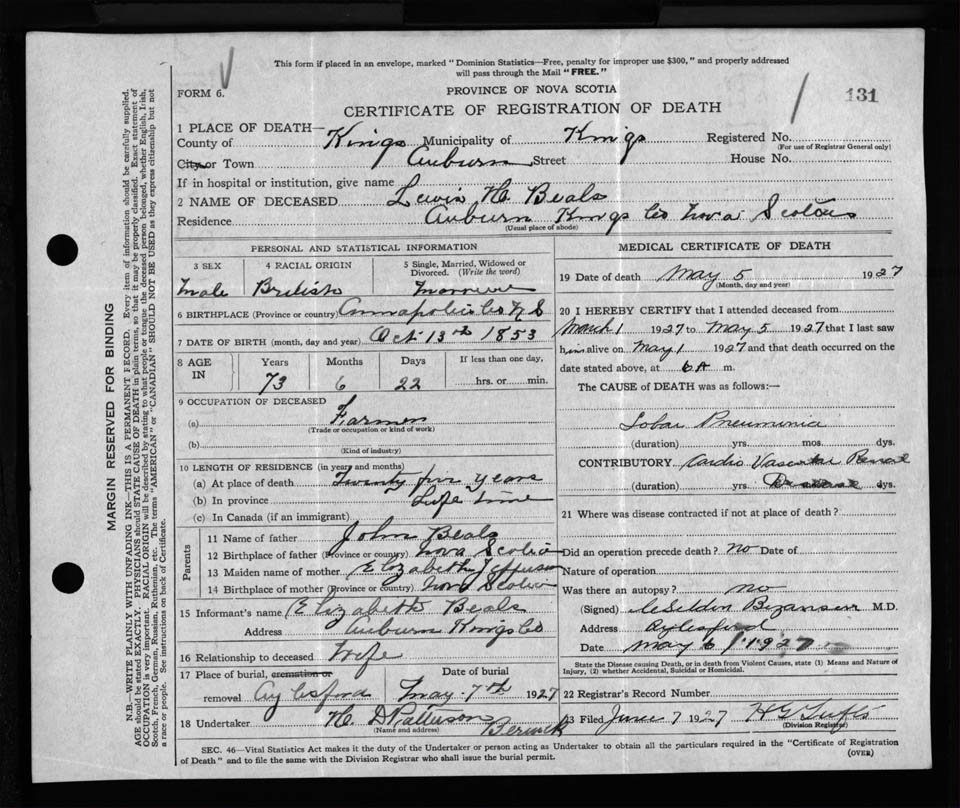 This form if placed in an envelope, marked "Dominion Statistics—Free, penalty for improper use $300," and properly addressed
will pass through the Mail "FREE."
FORM 6.
PROVINCE OF NOVA SCOTIA
131
CERTIFICATE OF REGISTRATION OF DEATH
1 PLACE OF DEATH—
County of Kings Municipality of Kings Registered No.
(For use of Registrar General only)
City or Town Auburn Street House No.
If in hospital or institution, give name
2 NAME OF DECEASED Lewis H. Beals
Residence Auburn Kings Co Nova Scotia
(Usual place of abode)
PERSONAL AND STATISTICAL INFORMATION
3 SEX 4 RACIAL ORIGIN 5 Single, Married, Widowed or
Divorced. (Write the word)
Male British Married
6 BIRTHPLACE (Province or country) Annapolis Co N S
7 DATE OF BIRTH (month, day and year) Oct 13th 1853
8 AGE IN Years Months Days If less than one day,
73 6 22 hrs. or min.
9 OCCUPATION OF DECEASED
(a) Farmer
(Trade or occupation or kind of work)
(b)
(Kind of industry)
10 LENGTH OF RESIDENCE (in years and months)
(a) At place of death Twenty five years
(b) In province Life time
(c) In Canada (if an immigrant)
Parents
11 Name of father John Beals
12 Birthplace of father (Province or country) Nova Scotia
13 Maiden name of mother Elizabeth Jefferson
14 Birthplace of mother (Province or country) Nova Scotia
15 Informant's name Elizabeth Beals
Address Auburn Kings Co
16 Relationship to deceased Wife
17 Place of burial, cremation or Date of burial
removal Aylesford May 7th 1927
18 Undertaker H. D Patterson Berwick
(Name and address)
MEDICAL CERTIFICATE OF DEATH
19 Date of death May 5 1927
(Month, day and year)
20 I HEREBY CERTIFY that I attended deceased from
March 1 1927 to May 5 1927 that I last saw
him alive on May 1 1927 and that death occurred on the
date stated above, at 6 A m.
The CAUSE of DEATH was as follows:—
Lobar Pneumonia
(duration) yrs. mos. dys.
CONTRIBUTORY Cardio Vascular Renal
(duration) yrs. Disease dys.
21 Where was disease contracted if not at place of death?
Did an operation precede death? no Date of
Nature of operation
Was there an autopsy? no
(Signed) M.D.
Address Aylesford
Date May 6 1927
State the Disease causing Death, or in death from Violent Causes, state (1) Means and Nature of
Injury, (2) whether Accidental, Suicidal or Homicidal.
22 Registrar's Record Number
23 Filed June 7 1927 H E Tufts
(Division Registrar)
SEC. 46—Vital Statistics Act makes it the duty of the Undertaker or person acting as Undertaker to obtain all the particulars required in the "Certificate of Registration
of Death" and to file the same with the Division Registrar who shall issue the burial permit.
(OVER)
MARGIN RESERVED FOR BINDING
N.B.—WRITE PLAINLY WITH UNFADING INK—THIS IS A PERMANENT RECORD. Every item of information should be carefully supplied.
AGE should be stated EXACTLY. PHYSICIANS should STATE CAUSE OF DEATH in plain terms, so that it may be properly classified. Exact statement of
OCCUPATION is very important. RACIAL ORIGIN will be described by stating to what people or tongue the deceased person belonged, whether English, Irish,
Scotch, French, German, Russian, Ruthenian, etc. The terms "AMERICAN" or "CANADIAN" SHOULD NOT BE USED as they express citizenship but not
a race or people. See instructions on back of Certificate.